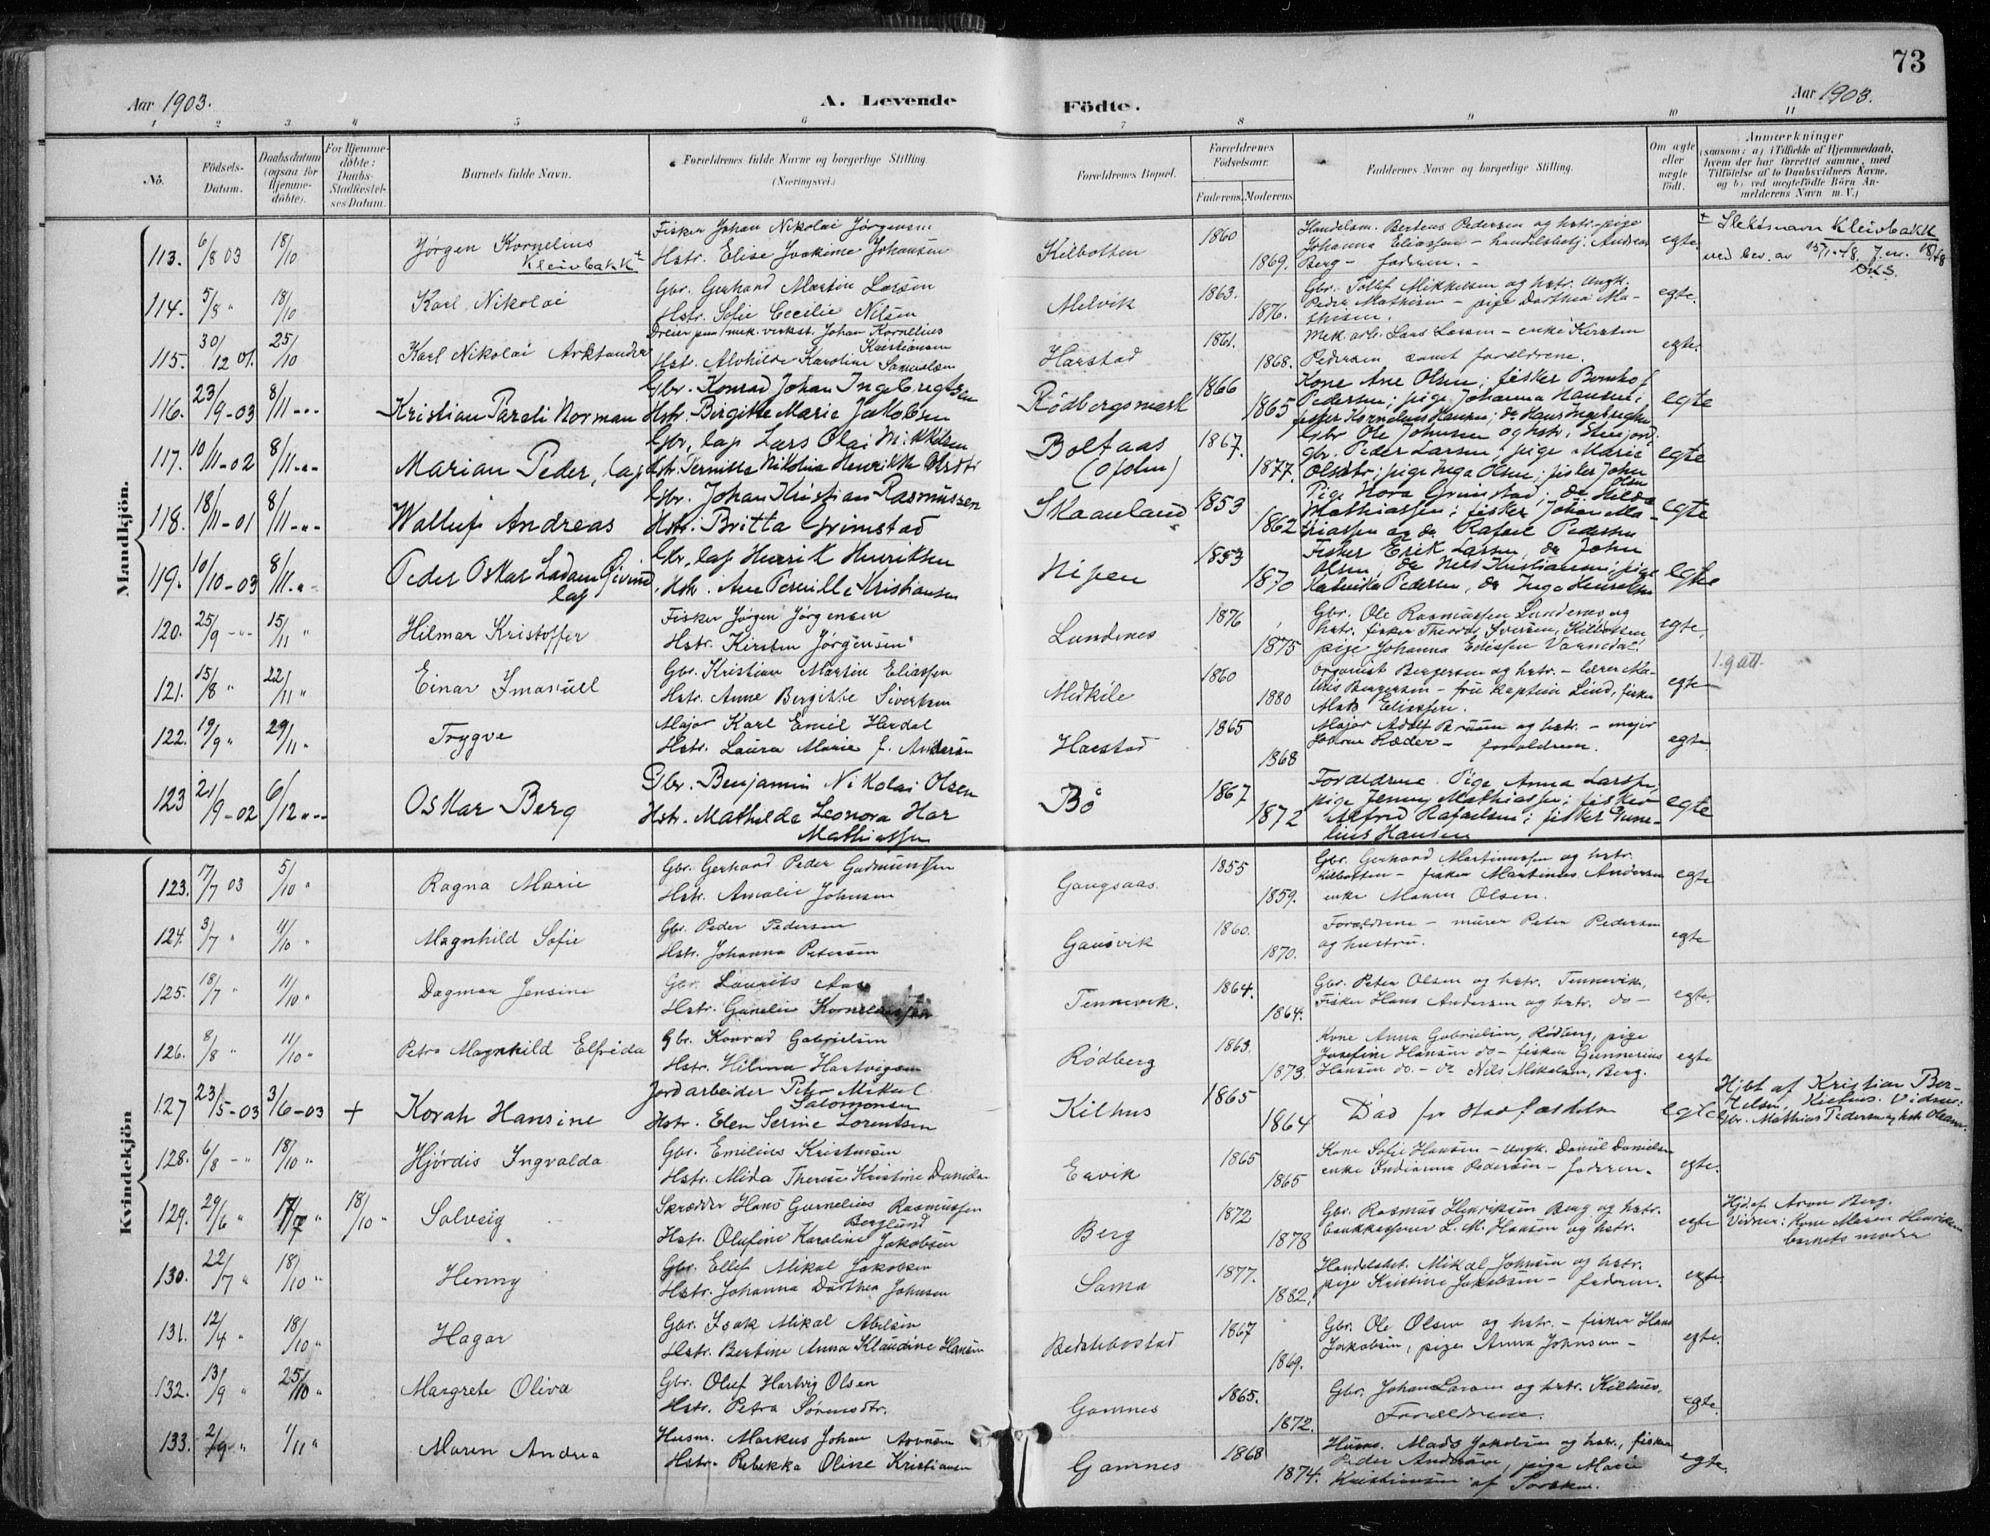 73
Aar 1903. A. Levende Födte. Aar 1903.
1 2 3 4 5 6 7 8 9 10 11
No.
Födsels-
Datum.
Daabsdatum
(ogsaa for
Hjemme-
döbte).
For Hjemme-
döbte:
Daabs-
Stadfæstel-
ses Datum.
Barnets fulde Navn.
Forældrenes fulde Navne og borgerlige Stilling
(Næringsvei.)
Forældrenes Bopæl.
Forældrenes
Födselsaar.
Faderens. Moderens.
Faddernes Navne og borgerlige Stilling.
Om ægte
eller
uægte
født.
Anmærkninger
(saasom: a) i Tilfælde af Hjemmedaab,
hvem der har forrettet samme, med
Tilföielse af to Daabsvidners Navne,
og b) ved uægtefödte Börn An-
melderens Navn m. V.)
Mandkjön.
113. 6/8 03 18/10 Jørgen Kornelius Kleivbakk +
Fisker Johan Nikolai Jørgensen
Hstr. Elise Joakime Johansen
Kilbotten 1860 1869.
Handelsm. Bertens Pedersen og hstr. pige
Johanna Eliassen – handelsbetj. Andreas
Berg – faderen. –
egte.
+ Slektsnavn Kleivbakk
ved bev. av 15/1-48. J.nr. 18/48
114. 5/8 " 18/10 Karl Nikolai
Gbr. Gerhard Martin Larsen
Hstr. Sofie Cecilie Nilsen
Melvik 1863. 1876.
Gbr. Tollef Mikkelsen og hstr. ungk.
Peder Mathisen – pige Dorthea Ma-
thisen.
egte.
115. 30/12 01. 25/10 Karl Nikolai Arktander
Dreier paa mek. verkst. Johan Kornelius
Kristiansen
Hst. Alvhilde Karoline Samuelsen
Harstad 1861. 1868.
Mek. arb. Lars Larsen – enke Kirsten
Pedersen samt forældrene.
egte.
116. 23/9-03 8/11-" Kristian Pareli Norman
Gbr. Konrad Johan Ingebregtsen
Hstr. Birgitte Marie Jakobsen
Rödbergsmark 1866 1865
Kone Ane Olsen; fisker Bernhof
Pedersen; pige Johanna Hansen;
fisker Kornelius Hansen; do Hans Ingebregtsen
egte
117. 10/11-02 8/11-" Marian Peder, lap
Gbr, lap Lars Olai Mikkelsen
Hstr. Pernille Nikolina Henrikke Olsdtr
Boltaas
(Ofoten)
1867. 1877.
Gbr Ole Johnsen og hstr. Stenjord.
Gbr. Peder Larsen, pige Marie
Olsdtr; pige Inga Olsen; fisker John
Olsen
egte
118. 18/11-01 8/11-" Walluf Andreas
Gbr. Johan Kristian Rasmussen
Hstr. Britta Grimstad
Skaanland 1853 1862
Pige Nora Grimstad; do Hilda
Mathiassen; fisker Johan Ma-
thiassen og do Rafael Pedersen
egte
119. 10/10-03 8/11-" Peder Oskar Ladam Eivind
lap
Gbr, lap Henrik Henriksen
Hstr. Ane Pernille Kristiansen
Nipen 1853 1870
Fisker Erik Larsen, do John
Olsen, do Nils Kristiansen; pige
Katrinka Pedersen, do Inga Henriksen
egte
120. 25/9 -" 15/11 " Hilmar Kristoffer
Fisker Jørgen Jørgensen
Hstr. Kirsten Jørgensen
Lundenes 1876 1875
Gbr. Ole Rasmussen Lundenes og
hstr. fisker Theodor Iversen, Kilbotten
pige Johanna Edissen
egte.
121. 15/8 " 22/11 " Einar Imanuell
Gbr. Kristian Martin Eliassen
Hstr. Anne Bergitte Sivertsen
Medkile 1860 1880
Organist Bergersen og hstr. – lærer
Bergersen – fru kaptein Lind, fisker
Mats Eliassen.
egte
1 g att.
122. 19/9 " 29/11 " Trygve
Major Karl Emil Herdal
Hstr. Laura Marie f. Andersen
Harstad 1865 1868
Major Adolf Bruun og hstr. – major
Ræder – forældrene.
egte
123 21/9-02 6/12 " Oskar Berg
Gbr. Benjamin Nikolai Olsen
Hstr. Mathilde Leonora Har
Mathiassen
Bö 1867 1872
Forældrene. Pige Anna Larsen,
pige Jenny Mathiassen; fisker
Alfred Rafaelsen; fisker Gune-
lius Hansen
egte
Kvindekjön
123. 17/7 03 5/10 " Ragna Marie
Gbr. Gerhard Peder Gudmundsen
Hstr. Amalie Johnsen
Gangsaas. 1855 1859.
Gbr. Gerhard Martinussen og hstr.
Kilbotten – fisker Martinus Andersen
enke Maren Olsen.
egte
124. 3/7 " 11/10 " Magnhild Sofie
Gbr. Peder Pedersen
Hstr. Johanna Petersen
Gausvik 1860. 1870.
Forældrene – murer Peter Pedersen
og hustru.
egte
125. 18/7 " 11/10 " Dagmar Jensine
Gbr. Laurits Aas
Hstr. Gunelie Korneliussen
Tennevik. 1864. 1864.
Gbr. Peter Olsen og hstr. Tennevik,
Fisker Hans Andersen og hstr. do –
egte.
126. 8/8 " 11/10 " Petra Magnhild Elfrida
Gbr. Konrad Gabrielsen
Hstr. Hilma Hartvigsen
Rødberg 1863. 1873.
Kone Anna Gabrielsen, Rødberg, pige
Josefine Hansen do – fisker Gunnerius
Hansen do. – do Nils Mikalsen, Berg.
egte
127 23/5-03 3/6-03 + Korah Hansine
Jordarbeider Peter Mikal
Salomonsen
Hstr. Elen Serine Lorentsen
Kilhus 1865 1864
Död før stadfæstelsen
egte
Hjdt af Kristian Ber-
telsen, Kilhus. Vidner:
Gbr. Mathias Pedersen og hstr Oleanna.
128. 6/8 -" 18/10 " Hjørdis Ingvalda
Gbr. Emilius Kristensen
Hstr. Mida Therese Kristine Daniels.
Ervik 1865 1865
Kone Sofie Hansen – ungk. Daniel Danielsen
enke Indianna Pedersen – faderen.
egte.
129. 29/6 " 17/7 " 18/10 " Solveig
Skrædder Hans Gurnelius Rasmussen
Berglund
Hstr. Olufine Karoline Jakobsen
Berg 1872 1878
Gbr. Rasmus Henriksen Berg og hstr.
bankkasserer L. M. Hansen og hstr.
egte
Hjd. af Aron Berg.
Vidner: Kone Maren Henriksen
barnets moder
130. 22/7 " 18/10 " Henny
Gbr. Ellef Mikal Jakobsen
Hstr. Johanna Dorthea Johnsen
Sama 1877. 1882.
Handelsbet. Mikal Johnsen og hstr.
pige Kristine Jakobsen – faderen.
egte
131. 12/4 " 18/10 " Hagar
Gbr. Isak Mikal Abelsen
Hstr. Bertine Anna Klaudine Hansen
1867 1869.
Gbr. Ole Olsen og hstr. – fisker Hans
Jakobsen, pige Anna Johnsen –
egte.
132. 13/9 " 25/10 " Margrete Oliva
Gbr. Oluf Hartvig Olsen
Hstr. Petra Sørensdtr.
Gamnes 1865. 1872.
Gbr. Johan Larsen og hstr. Kilhus.
Forældrene.
egte.
133. 2/9 " 1/11 " Maren Andrea
Husm. Markus Johan Arvnsen
Hstr. Rebekka Oline Kristiansen
Gamnes 1868 1874.
Husm. Mads Jakobsen og hstr., fisker
Peder Andersen, pige Marie
Kristiansen af
egte.